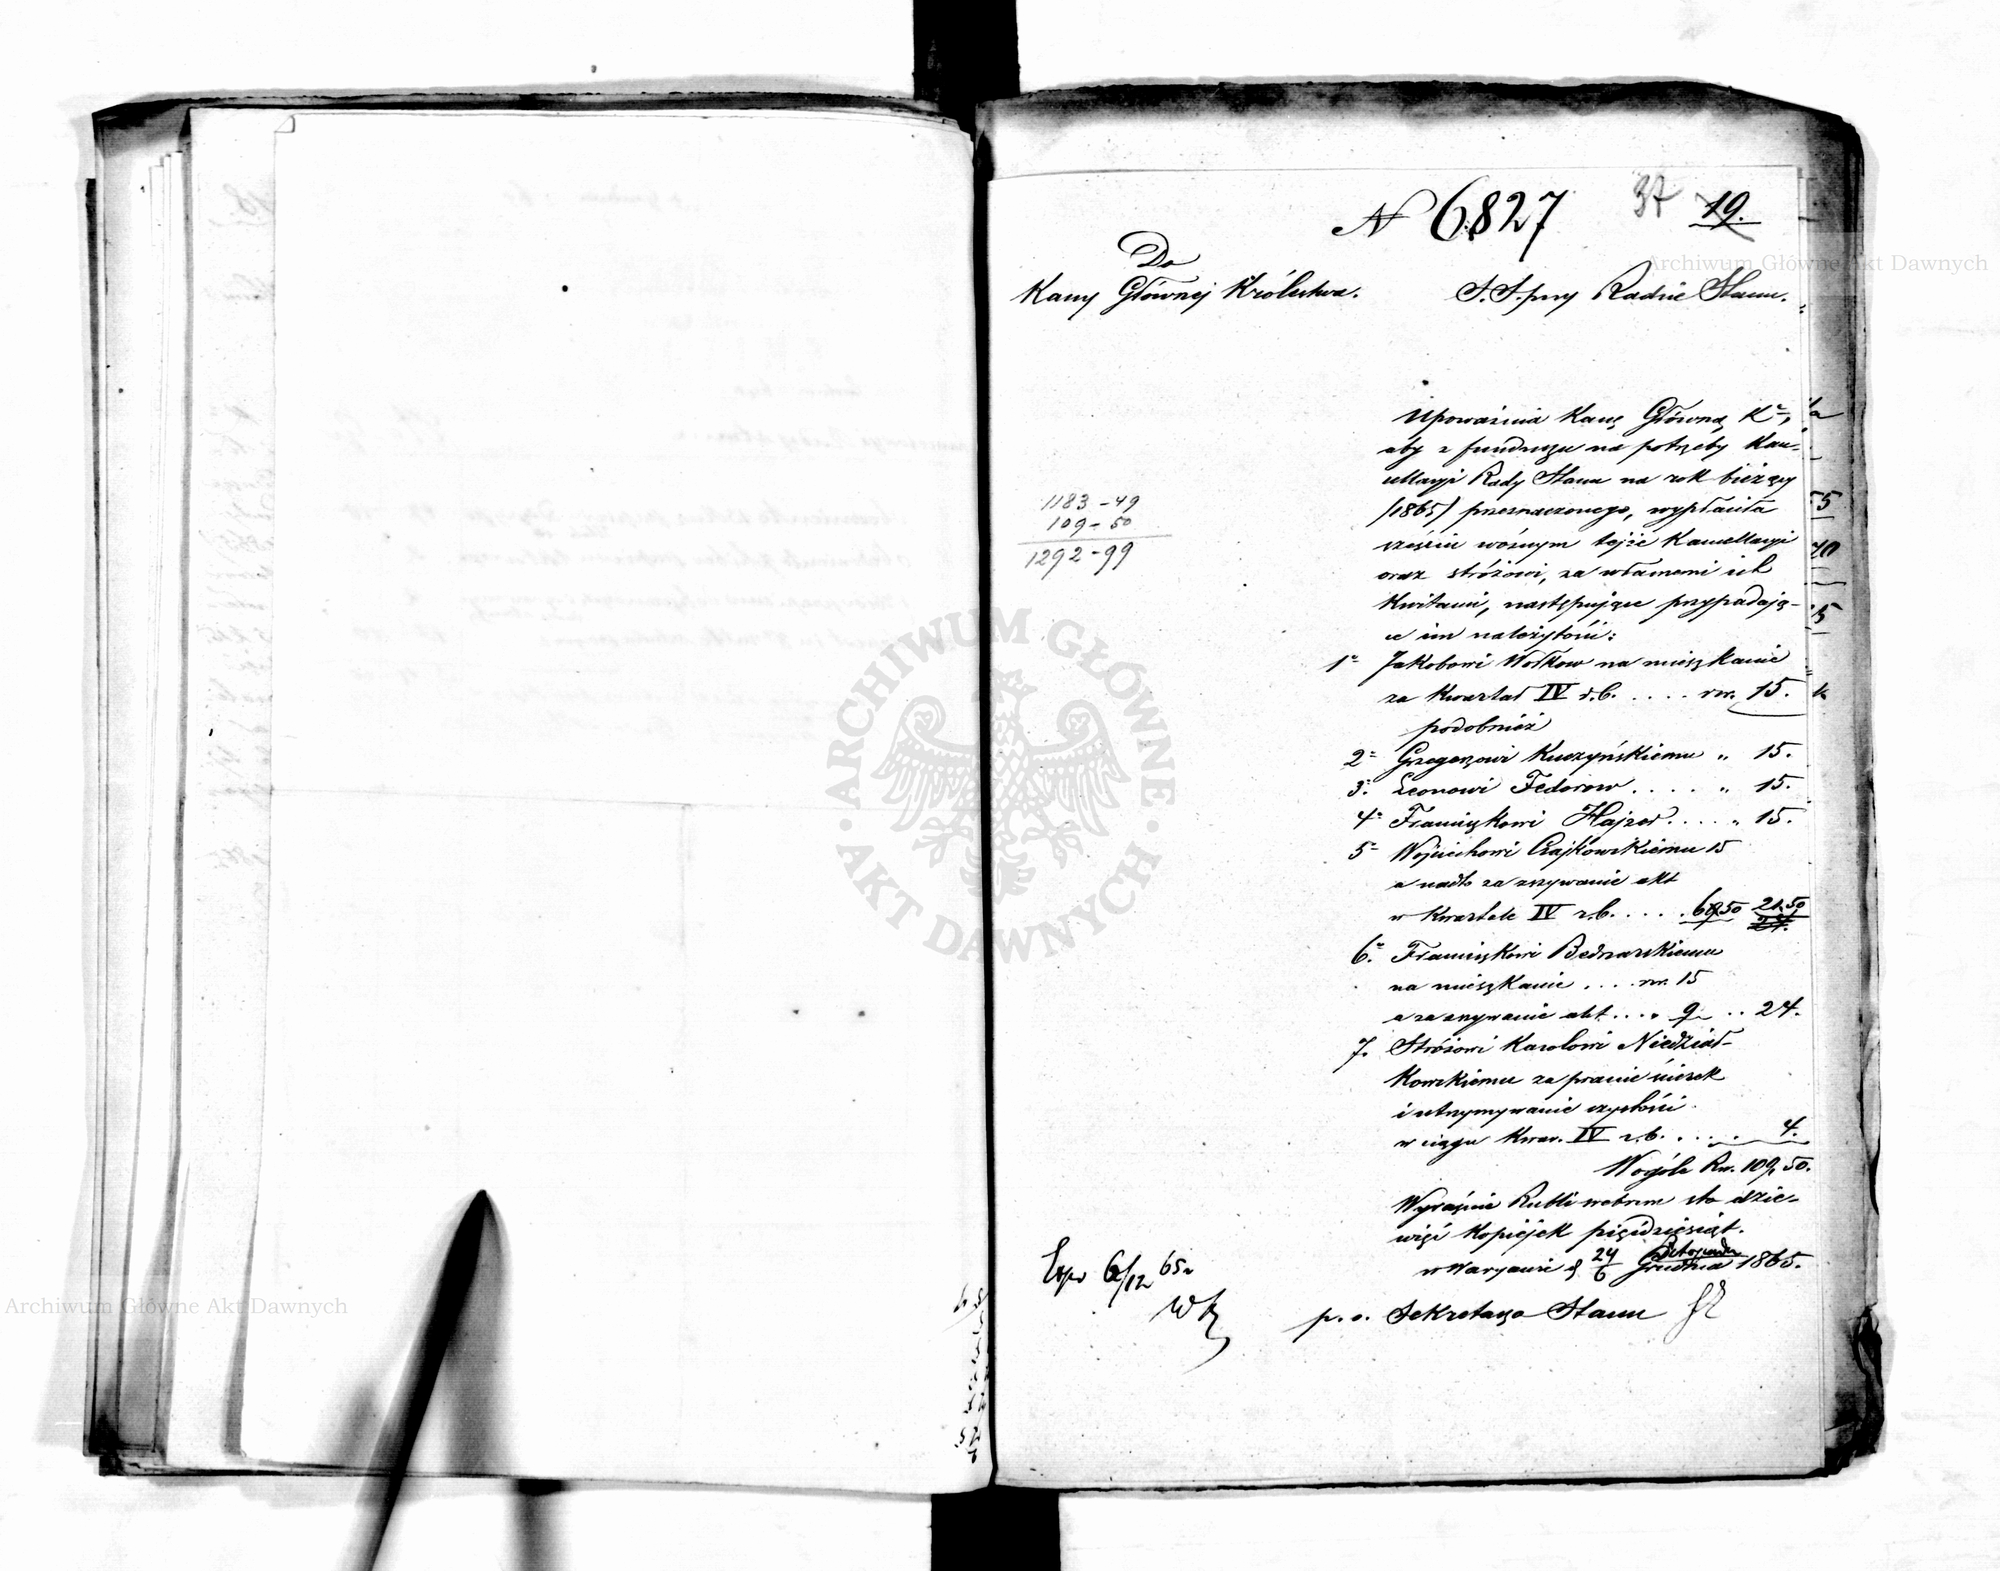 N 6827
37 19.
Archiwum Główne Akt Dawnych
Do
Kassy Głównej Królestwa.
S. S. przy Radzie Stanu.
Upoważnia Kassę Główną K.,
aby z funduszu na potrzeby Kan-
cellaryi Rady Stanu na rok bieżący
/1865/ przeznaczonego, wypłaciła
sześciu woźnym tejże Kancellaryi
oraz stróżowi, za własnemi ich
kwitami, następujące przypadają-
ce im należytości:
1183 - 49
109 - 50
1292 - 99
1e Jakobowi Wołkow na mieszkanie
za kwartał IV r.b. . . . . rsr. 15.
podobnież
2e Grzegorzowi Kuczyńskiemu " 15.
3e Leonowi Fedorow . . . . . " 15.
4e Franciszkowi Hajzer . . . . " 15.
5e Wojciechowi Czajkowskiemu 15
a nadto za zszywanie akt
w kwartale IV r.b. . . . . 6.50 21.50
6e Franciszkowi Bednarskiemu
na mieszkanie . . . . rsr. 15
a za zszywanie akt . . . " 9 . . 24.
7. Stróżowi Karolowi Niedział-
kowskiemu za pranie ścierek
i utrzymywanie czystości
w ciągu kwar. IV r.b. . . . . 4.
Wogóle Rsr. 109, 50.
Wyraźnie Rubli srebrem sto dzie-
więć kopiejek pięćdziesiąt.
w Warszawie d 24/6 Listopada/Grudnia 1865.
Exp 6/12 65 r
p. o. Sekretarza Stanu
ARCHIWUM GŁÓWNE
AKT DAWNYCH
Archiwum Główne Akt Dawnych